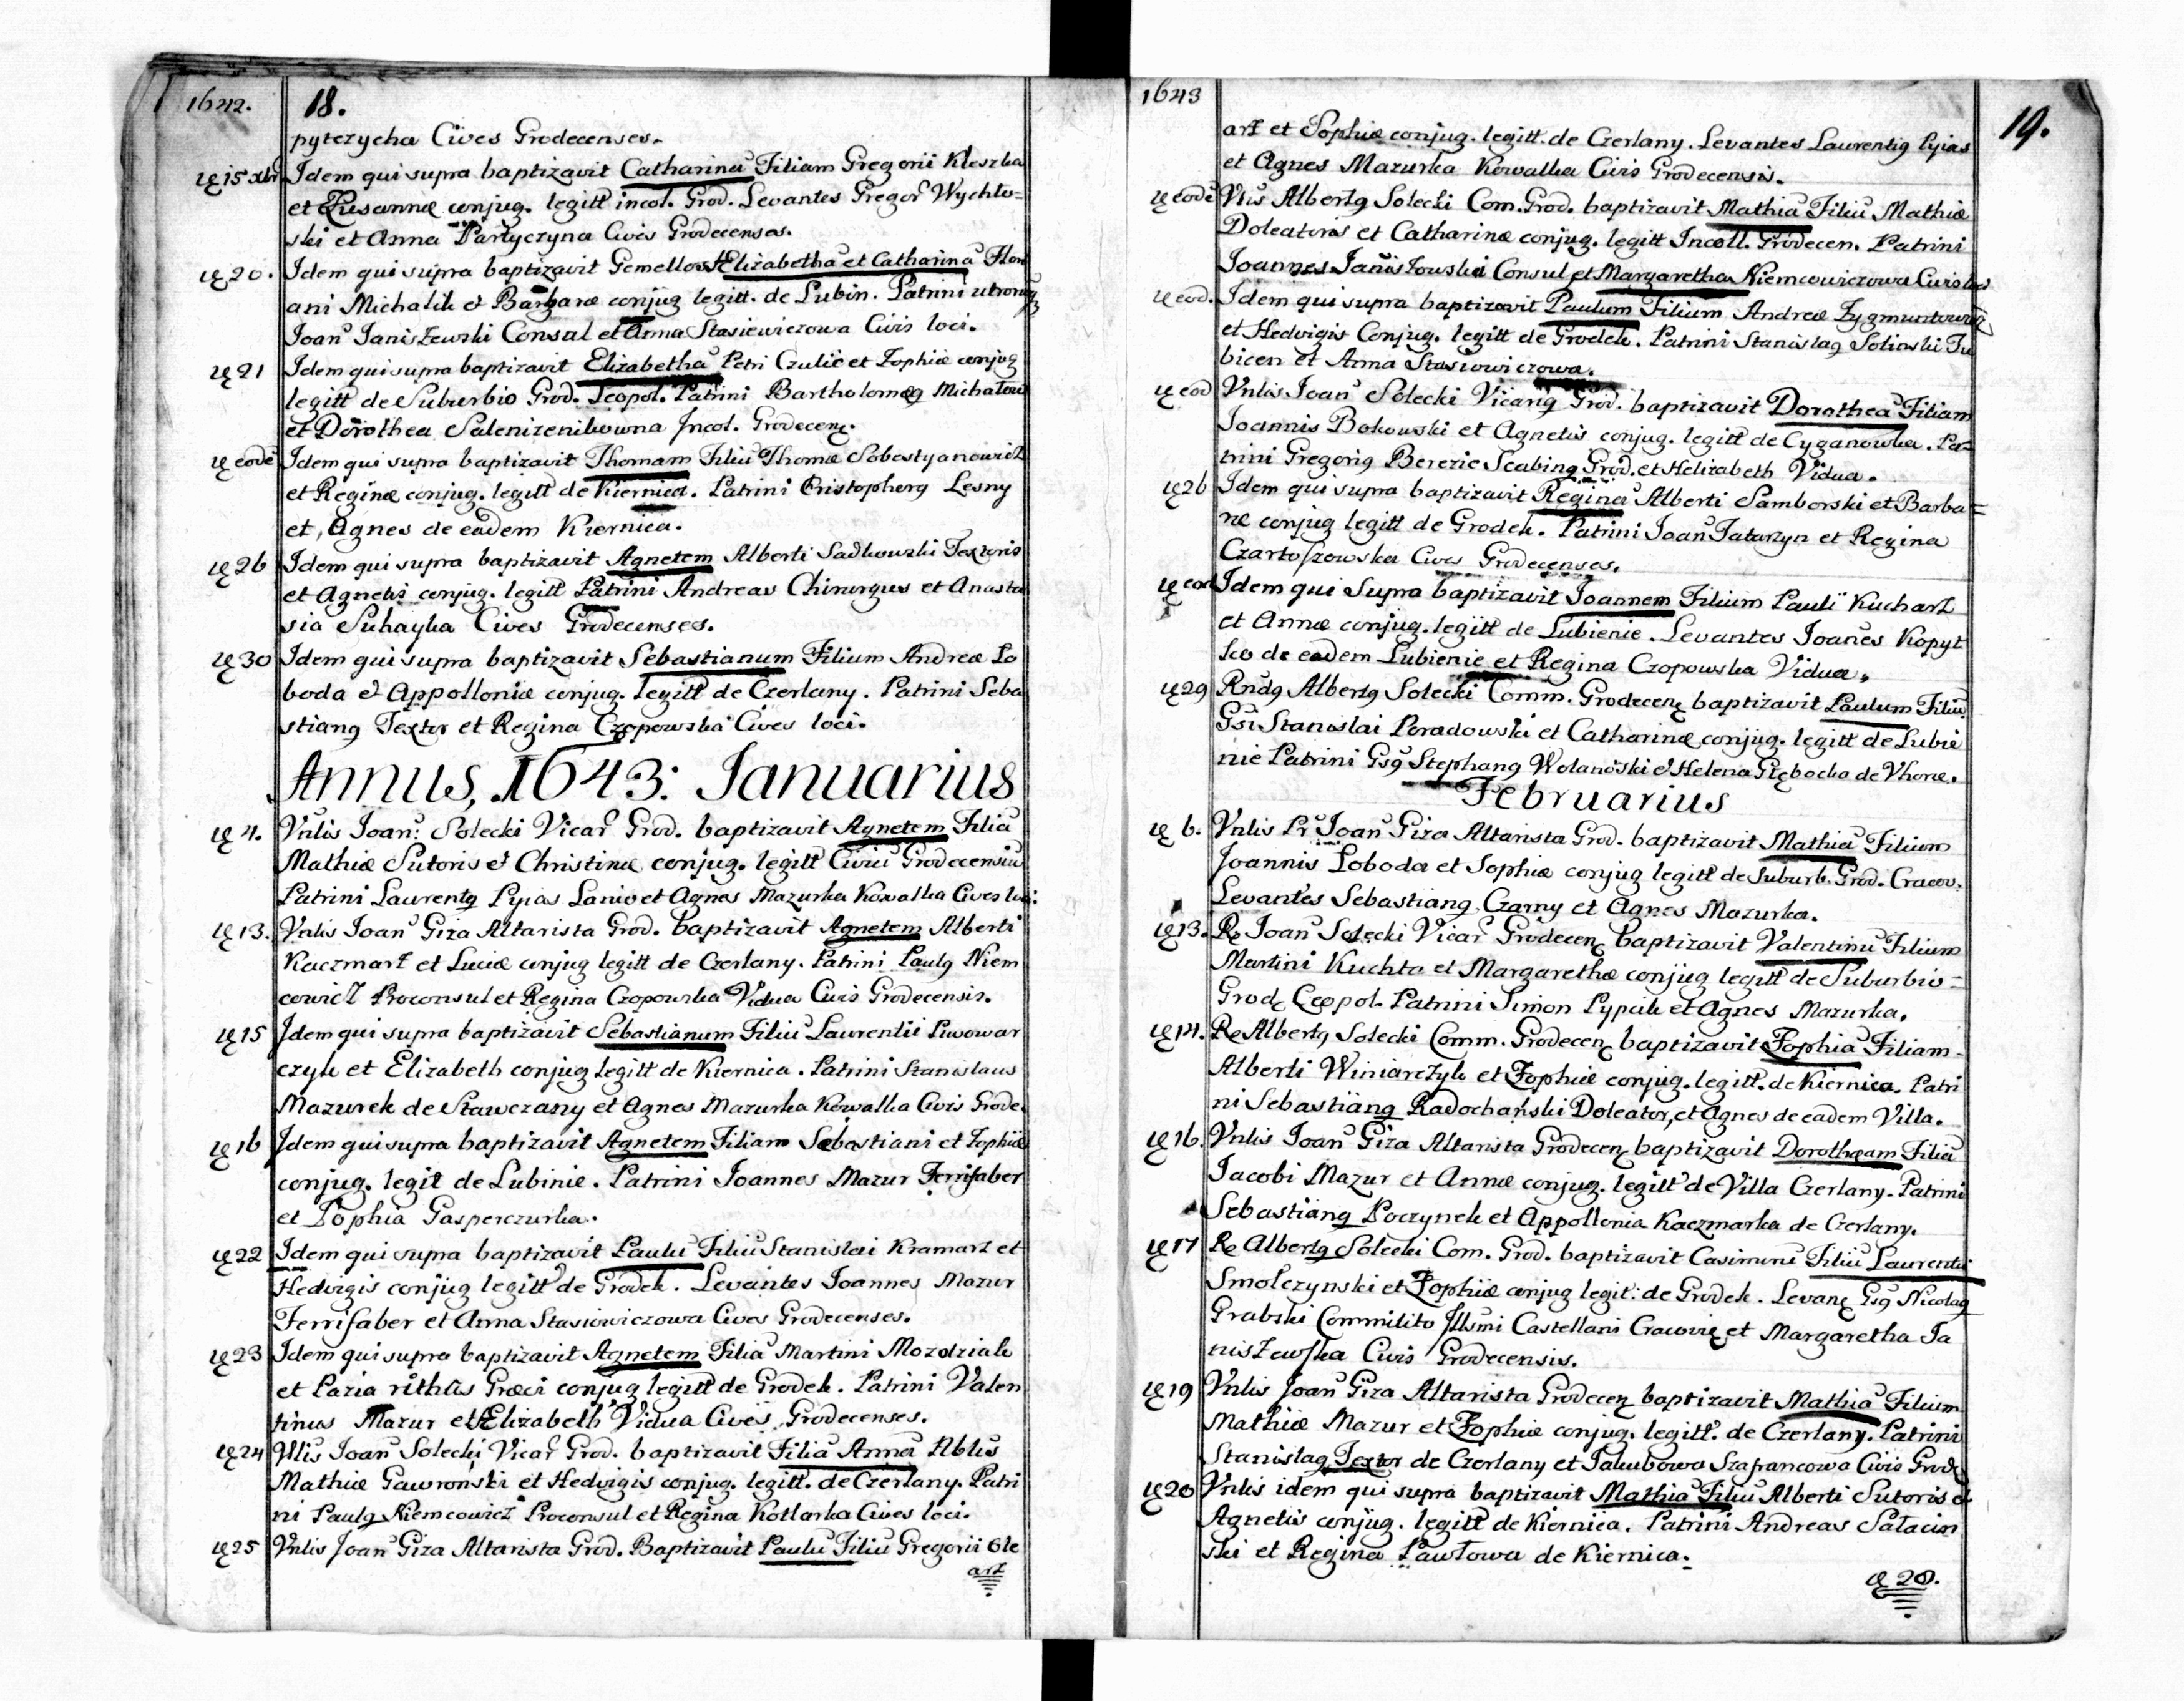 1642.
18.
pytczycha Cives Grodecenses.
15 xbr Idem qui supra baptizavit Catharinā Filiam Gregorii Kleszka
et Zusannæ conjug. legitt incol. Grod. Levantes Gregor Wychło=
ski et Anna Partyczyna Cives Grodecenses.
20. Idem qui supra baptizavit Gemellos Elizabethā et Catharinā Flori
ani Michalik et Barbaræ conjug legitt. de Lubin. Patrini utronq
Joan Janiszewski Consul et Anna Stasiewiczowa Civis loci.
21 Idem qui supra baptizavit Elizabethā Petri Czulic et Zophiæ conjug
legitt de Suburbio Grod. Leopol. Patrini Bartholomeg Michałowi
et Dorothea Salenizenikowna Incol. Grodecen.
eodē Idem qui supra baptizavit Thomam Filiū Thomæ Sobestyanowicz
et Reginæ conjug. legitt de Kiernica. Patrini Cristopherg Lesny
et Agnes de eadem Kiernica.
26 Idem qui supra baptizavit Agnetem Alberti Sadkowski Textoris
et Agnetis conjug. legitt Patrini Andreas Chirurgus et Anasta
sia Suhayka Cives Grodecenses.
30 Idem qui supra baptizavit Sebastianum Filium Andreæ Lo
boda et Appolloniæ conjug. legitt de Czerlany. Patrini Seba
stiang Textor et Regina Czopowska Cives loci.
Annus, 1643: Januarius
4. Vnlis Joan: Solecki Vicar Grod. baptizavit Agnetem Filiā
Mathiæ Sutoris et Christinæ conjug. legitt Civiū Grodecensiū
Patrini Laurentg Pyias Lanio et Agnes Mazurka Kowalka Cives loci:
13. Vnlis Joan Giza Altarista Grod. baptizavit Agnetem Alberti
Kaczmarz et Luciæ conjug legitt de Czerlany. Patrini Paulg Niem
cowicz Proconsul et Regina Czopowska Vidua Civis Grodecensis.
15 Idem qui supra baptizavit Sebastianum Filiū Laurentii Piwowar
czyk et Elizabeth conjug legitt de Kiernica. Patrini Stanislaus
Mazurek de Stawczany et Agnes Mazurka Kowalka Civis Grode.
16 Idem qui supra baptizavit Agnetem Filiam Sebastiani et Zophiæ
conjug. legit de Lubinie. Patrini Joannes Mazur Ferrifaber
et Zophia Gasperczurka.
22 Idem qui supra baptizavit Paulū Filiū Stanislai Kramarz et
Hedvigis conjug legitt de Grodek. Levantes Joannes Mazur
Ferrifaber et Anna Stasiowiczowa Cives Grodecenses.
23 Idem qui supra baptizavit Agnetem Filiā Martini Mozdziale
et Pazia rithūs Græci conjug legitt de Grodek. Patrini Valen
tinus Mazur et Elizabeth Vidua Cives Grodecenses.
24 Vllis Joan Solecki Vicar Grod. baptizavit Filiā Annā Nblis
Mathiæ Gawronski et Hedvigis conjug. legitt. de Czerlany. Patri
ni Paulg Niemcowicz Proconsul et Regina Kotlarka Cives loci.
25 Vnlis Joan Giza Altarista Grod. Baptizavit Paulū Filiū Gregorii Ole
arz
1643
19.
arz et Sophiæ conjug. legitt. de Czerlany. Levantes Laurentig Pyias
et Agnes Mazurka Kowalka Civis Grodecensis.
eodē Vlis Albertg Solecki Com. Grod. baptizavit Mathiā Filiū Mathiæ
Doleatoris et Catharinæ conjug. legitt Incoll. Grodecen. Patrini
Joannes Janiszowski Consul et Margaretha Niemcowiczowa Civis loci
eod. Idem qui supra baptizavit Paulum Filium Andreæ Zygmuntowicz
et Hedvigis Conjug. legitt de Grodek. Patrini Stanislag Solinski Tu
bicen et Anna Stasiowiczowa.
eod Vnlis Joan Solecki Vicarig Grod. baptizavit Dorotheā Filiam
Joannis Bokowski et Agnetis conjug. legitt de Cyganowka. Pa=
trini Gregorig Berezic Scabing Grod. et Helizabeth Vidua.
26 Idem qui supra baptizavit Reginā Alberti Samborski et Barba=
ræ conjug legitt de Grodek. Patrini Joan Tatarzyn et Regina
Czartoszowska Cives Grodecenses.
eod Idem qui Supra baptizavit Joannem Filium Pauli Kucharz
et Annæ conjug. legitt de Lubienie. Levantes Joanes Kopyt
ko de eadem Lubienie et Regina Czopowska Vidua.
29 Rndg Albertg Solecki Comm. Grodecen baptizavit Paulum Filiū
Gsi Stanislai Poradowski et Catharinæ conjug. legitt de Lubie
nie Patrini Gsg Stephang Wolanoski et Helena Głębocka de Vhorce.
Februarius
6. Vnlis Pr Joan Giza Altarista Grod. baptizavit Mathiā Filium
Joannis Loboda et Sophiæ conjug legitt de Suburb. Grod. Cracov.
Levantes Sebastiang Czarny et Agnes Mazurka.
13. R Joan Solecki Vicar Grodecen baptizavit Valentinū Filium
Martini Kuchta et Margarethæ conjug legitt de Suburbio=
Grod Leopol. Patrini Simon Pypcik et Agnes Mazurka.
14. R Albertg Solecki Comm. Grodecen baptizavit Zophiā Filiam
Alberti Winiarczyk et Zophiæ conjug. legitt. de Kiernica. Patri
ni Sebastiang Radochański Doleator, et Agnes de eadem Villa.
16. Vnlis Joan Giza Altarista Grodecen baptizavit Dorotheam Filiā
Jacobi Mazur et Annæ conjug. legitt de Villa Czerlany. Patrini
Sebastiang Poczynek et Appollonia Kaczmarka de Czerlany.
17 R Albertg Solecki Com. Grod. baptizavit Casimirū Filiū Laurentii
Smolczynski et Zophiæ conjug legit: de Grodek. Levan Gsg Nicolag
Grabski Commilito Illsmi Castellani Cracovię et Margaretha Ja
niszewska Civis Grodecensis.
19 Vnlis Joan Giza Altarista Grodecen baptizavit Mathiā Filium
Mathiæ Mazur et Zophiæ conjug. legitt. de Czerlany. Patrini
Stanislag Textor de Czerlany et Jakubowa Szafrancowa Civis Grod
20 Vnlis idem qui supra baptizavit Mathiā Filiū Alberti Sutoris et
Agnetis conjug. legitt de Kiernica. Patrini Andreas Sałacin
ski et Regina Pawłowa de Kiernica.
28.